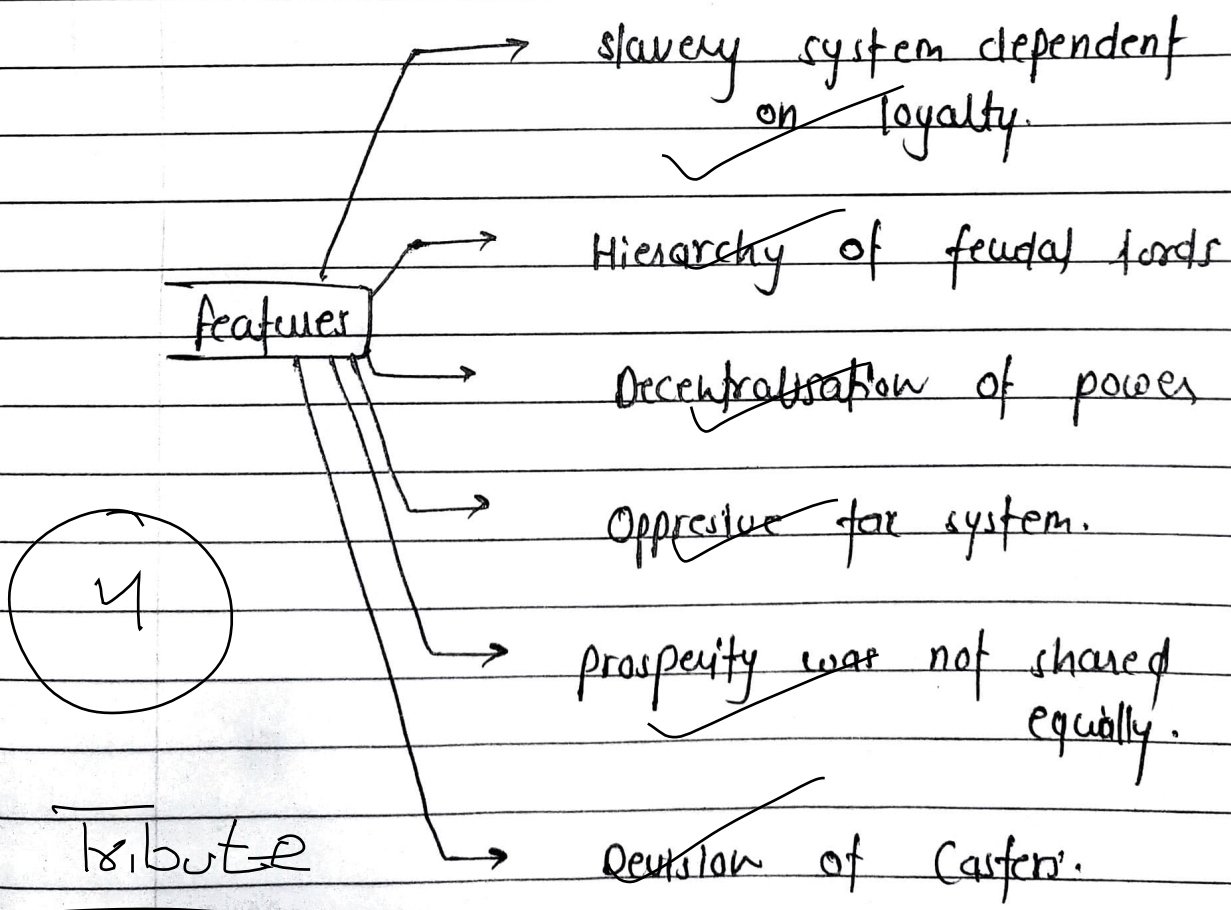 slavery system dependent
on loyalty.
Hierarchy of feudal lords
features
Decentralisation of power
Oppresive tax system.
4
prosperity was not shared
equally.
Tribute
Devision of Casters.